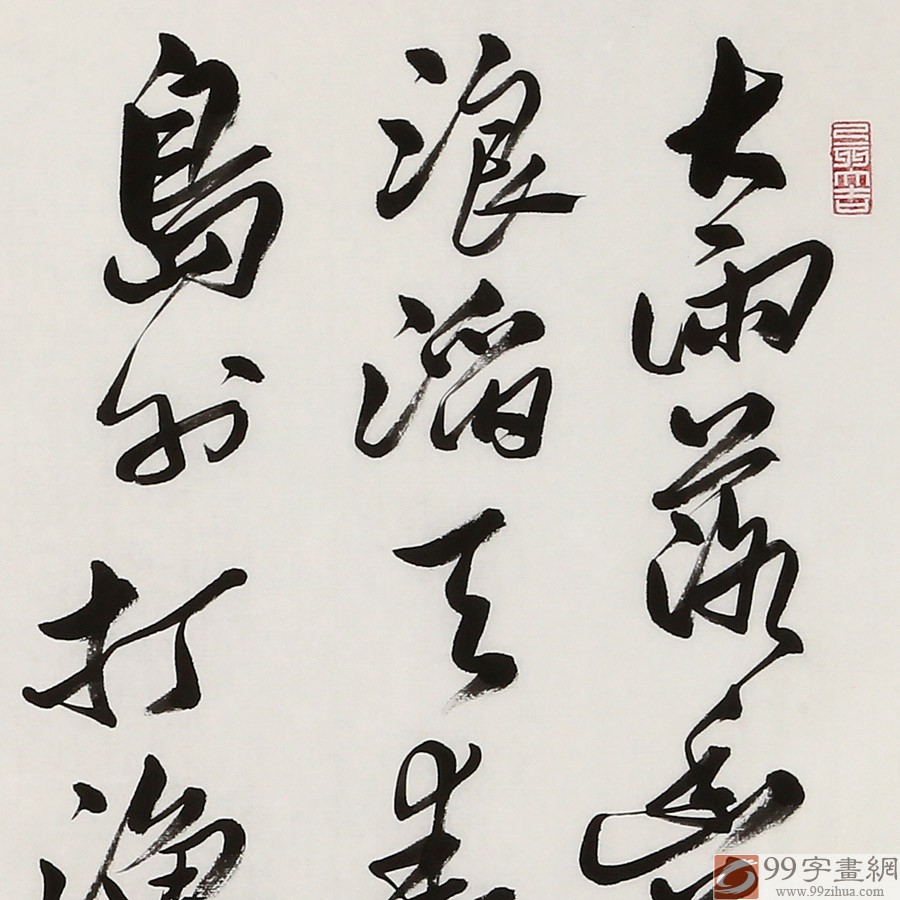 大雨落幽
浪滔天秦
島外打漁
99字畫網
www.99zihua.com